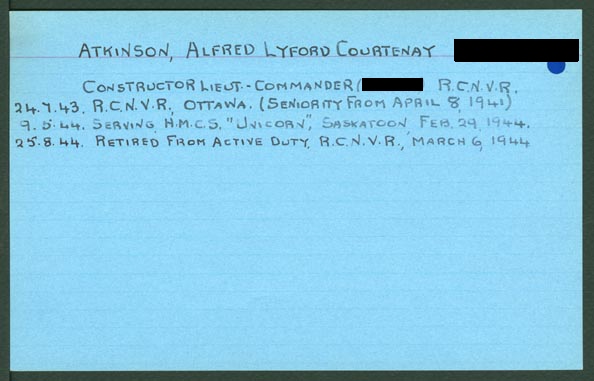 ATKINSON, ALFRED LYFORD COURTENAY
CONSTRUCTOR LIEUT.-COMMANDER ( R.C.N.V.R,
24.7.43. R.C.N.V.R, OTTAWA. (SENIORITY FROM APRIL 8, 1941)
9.5.44. SERVING, H.M.C.S. "UNICORN", SASKATOON, FEB. 29, 1944.
25.8.44. RETIRED FROM ACTIVE DUTY, R.C.N.V.R., MARCH 6, 1944